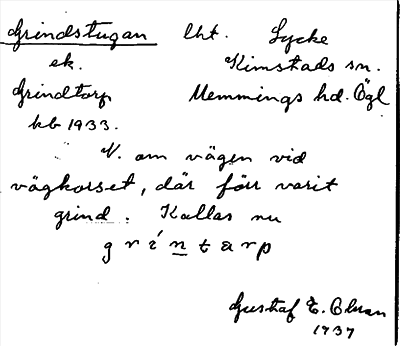 Grindstugan lht. Lycke
ek. Kimstads sn.
Grindtorp Memmings hd. Ögl
kb 1933.
N. om vägen vid
vägkorset, där förr varit
grind. Kallas nu
gríntarp
Gustaf E. Olsson
1937